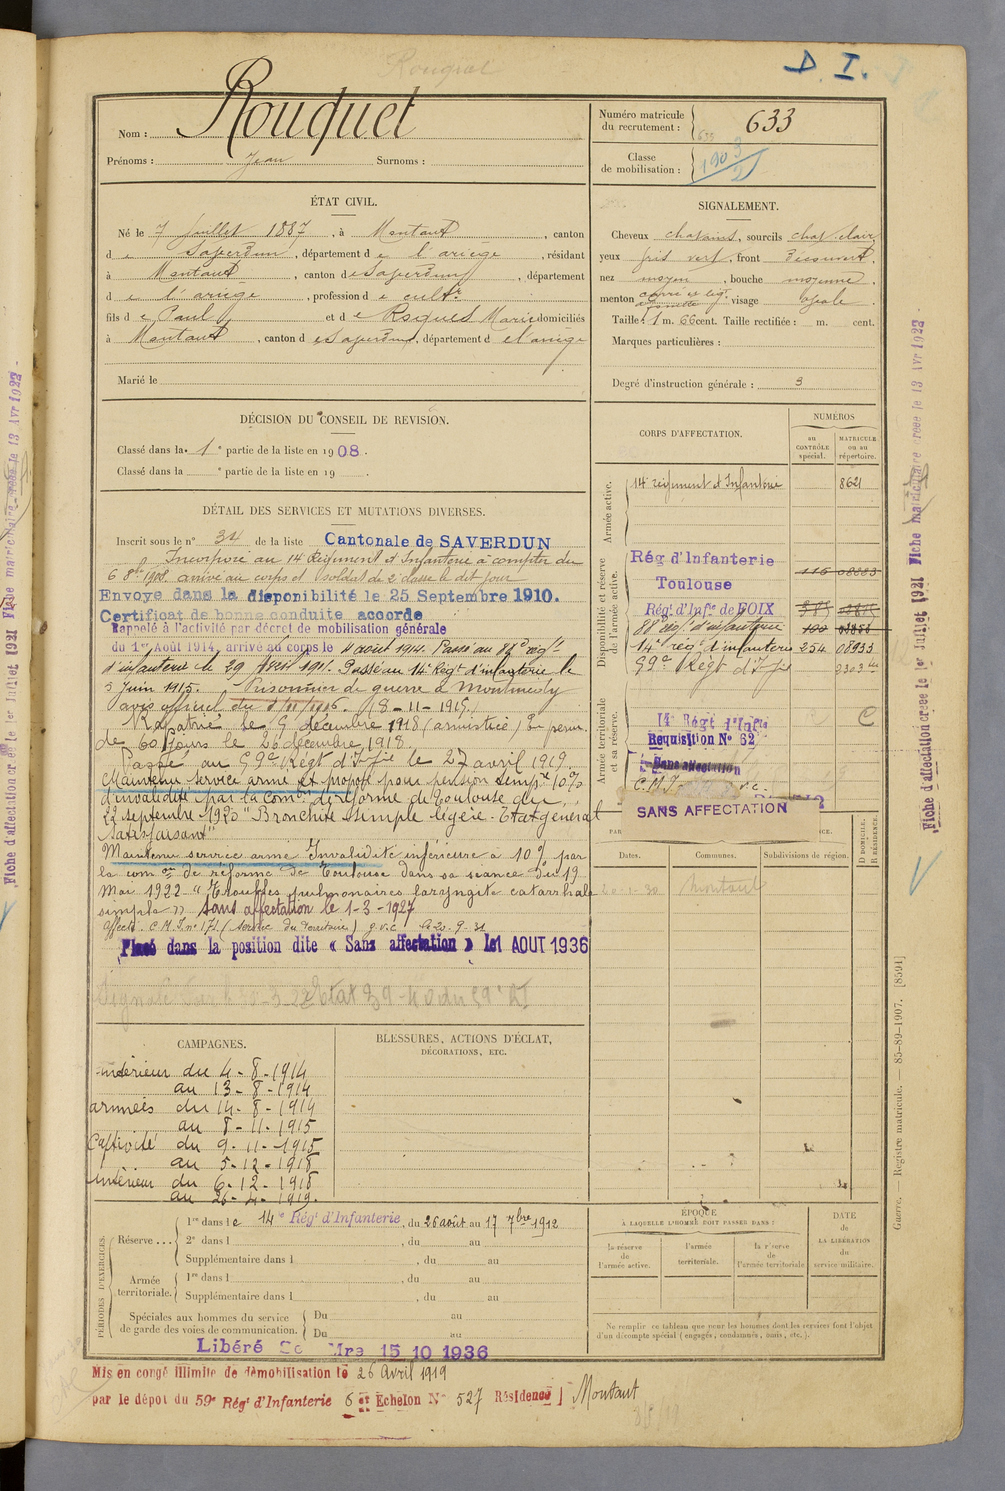 D. I.
Rouquet
Nom :
Prénoms : Jean Surnoms :
Numéro matricule
du recrutement : 633
Classe
de mobilisation : 1903
2
ÉTAT CIVIL.
Né le 7 Juillet 1887, à Montaut, canton
de Saverdun, département de l'ariège, résidant
à Montaut, canton de Saverdun, département
de l'ariège, profession de cultr
fils de Paul et de Roques Marie domiciliés
à Montaut, canton de Saverdun, département de l'ariège
Marié le
SIGNALEMENT.
Cheveux chatains, sourcils chat. clair
yeux gris vert, front découvert
nez moyen, bouche moyenne
menton visage ovale
Taille : 1 m. 66 cent. Taille rectifiée : m. cent.
Marques particulières :
Degré d'instruction générale : 3
DÉCISION DU CONSEIL DE REVISION.
Classé dans la 1e partie de la liste en 1908.
Classé dans la e partie de la liste en 19
DÉTAIL DES SERVICES ET MUTATIONS DIVERSES.
Inscrit sous le n° 34 de la liste Cantonale de SAVERDUN
Incorporé au 14 Régiment d'Infanterie à compter du
6 8bre 1908. arrivé au corps et soldat de 2e classe le dit jour
Envoyé dans la disponibilité le 25 Septembre 1910.
Certificat de bonne conduite accordé
Rappelé à l'activité par décret de mobilisation générale
du 1er Août 1914, arrivé au corps le 4 août 1914. Passé au 88e régt
d'infanterie le 29 1915. Passé au 14e Régt d'infanterie le
5 Juin 1915. Prisonnier de guerre à Montmedy
avis officiel du (8-11-1915)
Rapatrié le 9 décembre 1918 (armistice) En perm.
de 60 jours le 26 décembre 1918.
Passé au 59e Régt d'Infie le 27 avril 1919.
Maintenu service armé et proposé pour pension tempre 10%
d'invalidité par la Comon de réforme de Toulouse du
22 septembre 1920 "Bronchite simple légère. Etat général
satisfaisant"
Maintenu service armé Invalidité inférieure à 10% par
la comon de réforme de Toulouse dans sa séance du 19
Mai 1922 " pulmonaires laryngite catarrhale
simple" Sans affectation le 1-3-1927
Affecté C.M.I. n° 171 (service du Territoire) g.v.c.
Placé dans la position dite « Sans affectation » le 1 AOUT 1936
CORPS D'AFFECTATION.
NUMÉROS
au
CONTRÔLE
spécial.
MATRICULE
ou au
répertoire.
Armée active.
14e régiment d'Infanterie 8621
Disponibilité et réserve
de l'armée active.
Rég d'Infanterie
Toulouse
Rég. d'Infie de FOIX
88e régt d'infanterie
14e régt d'infanterie 254 08933
59e Régt d'Infie
Armée territoriale
et sa réserve.
14e Régt d'Infie
Requisition N° 62
Sans affectation
C.M.I. v.c.
SANS AFFECTATION
Dates. Communes. Subdivisions de région.
D DOMICILE.
R RÉSIDENCE.
20-1-30 Montaut
CAMPAGNES.
Intérieur du 4-8-1914
au 13-8-1914
armées du 14-8-1914
au 8-11-1915
Captivité du 9-11-1915
au 5-12-1918
Intérieur du 6-12-1918
au 26-4-1919.
BLESSURES, ACTIONS D'ÉCLAT,
DÉCORATIONS, ETC.
PÉRIODES D'EXERCICES.
Réserve ...
1re dans le 14e Régt d'Infanterie, du 26 août au 17 7bre 1912
2e dans l , du au
Supplémentaire dans l , du au
Armée
territoriale.
1re dans l , du au
Supplémentaire dans l , du au
Spéciales aux hommes du service
de garde des voies de communication.
Du au
Du au
Libéré 15 10 1936
ÉPOQUE
À LAQUELLE L'HOMME DOIT PASSER DANS :
la réserve
de
l'armée active.
l'armée
territoriale.
la réserve
de
l'armée territoriale
DATE
de
LA LIBÉRATION
du
service militaire.
Ne remplir ce tableau que pour les hommes dont les services font l'objet
d'un décompte spécial (engagés, condamnés, omis, etc.).
Mis en congé illimité de démobilisation le 26 Avril 1919
par le dépôt du 59e Régt d'Infanterie 6e Echelon N° 527 Résidence Montaut
Guerre. — Registre matricule. — 85-89-1907. [8591]
Fiche matriculaire créée le 13 Avr 1922
Fiche d'affectation créée le 1er Juillet 1921